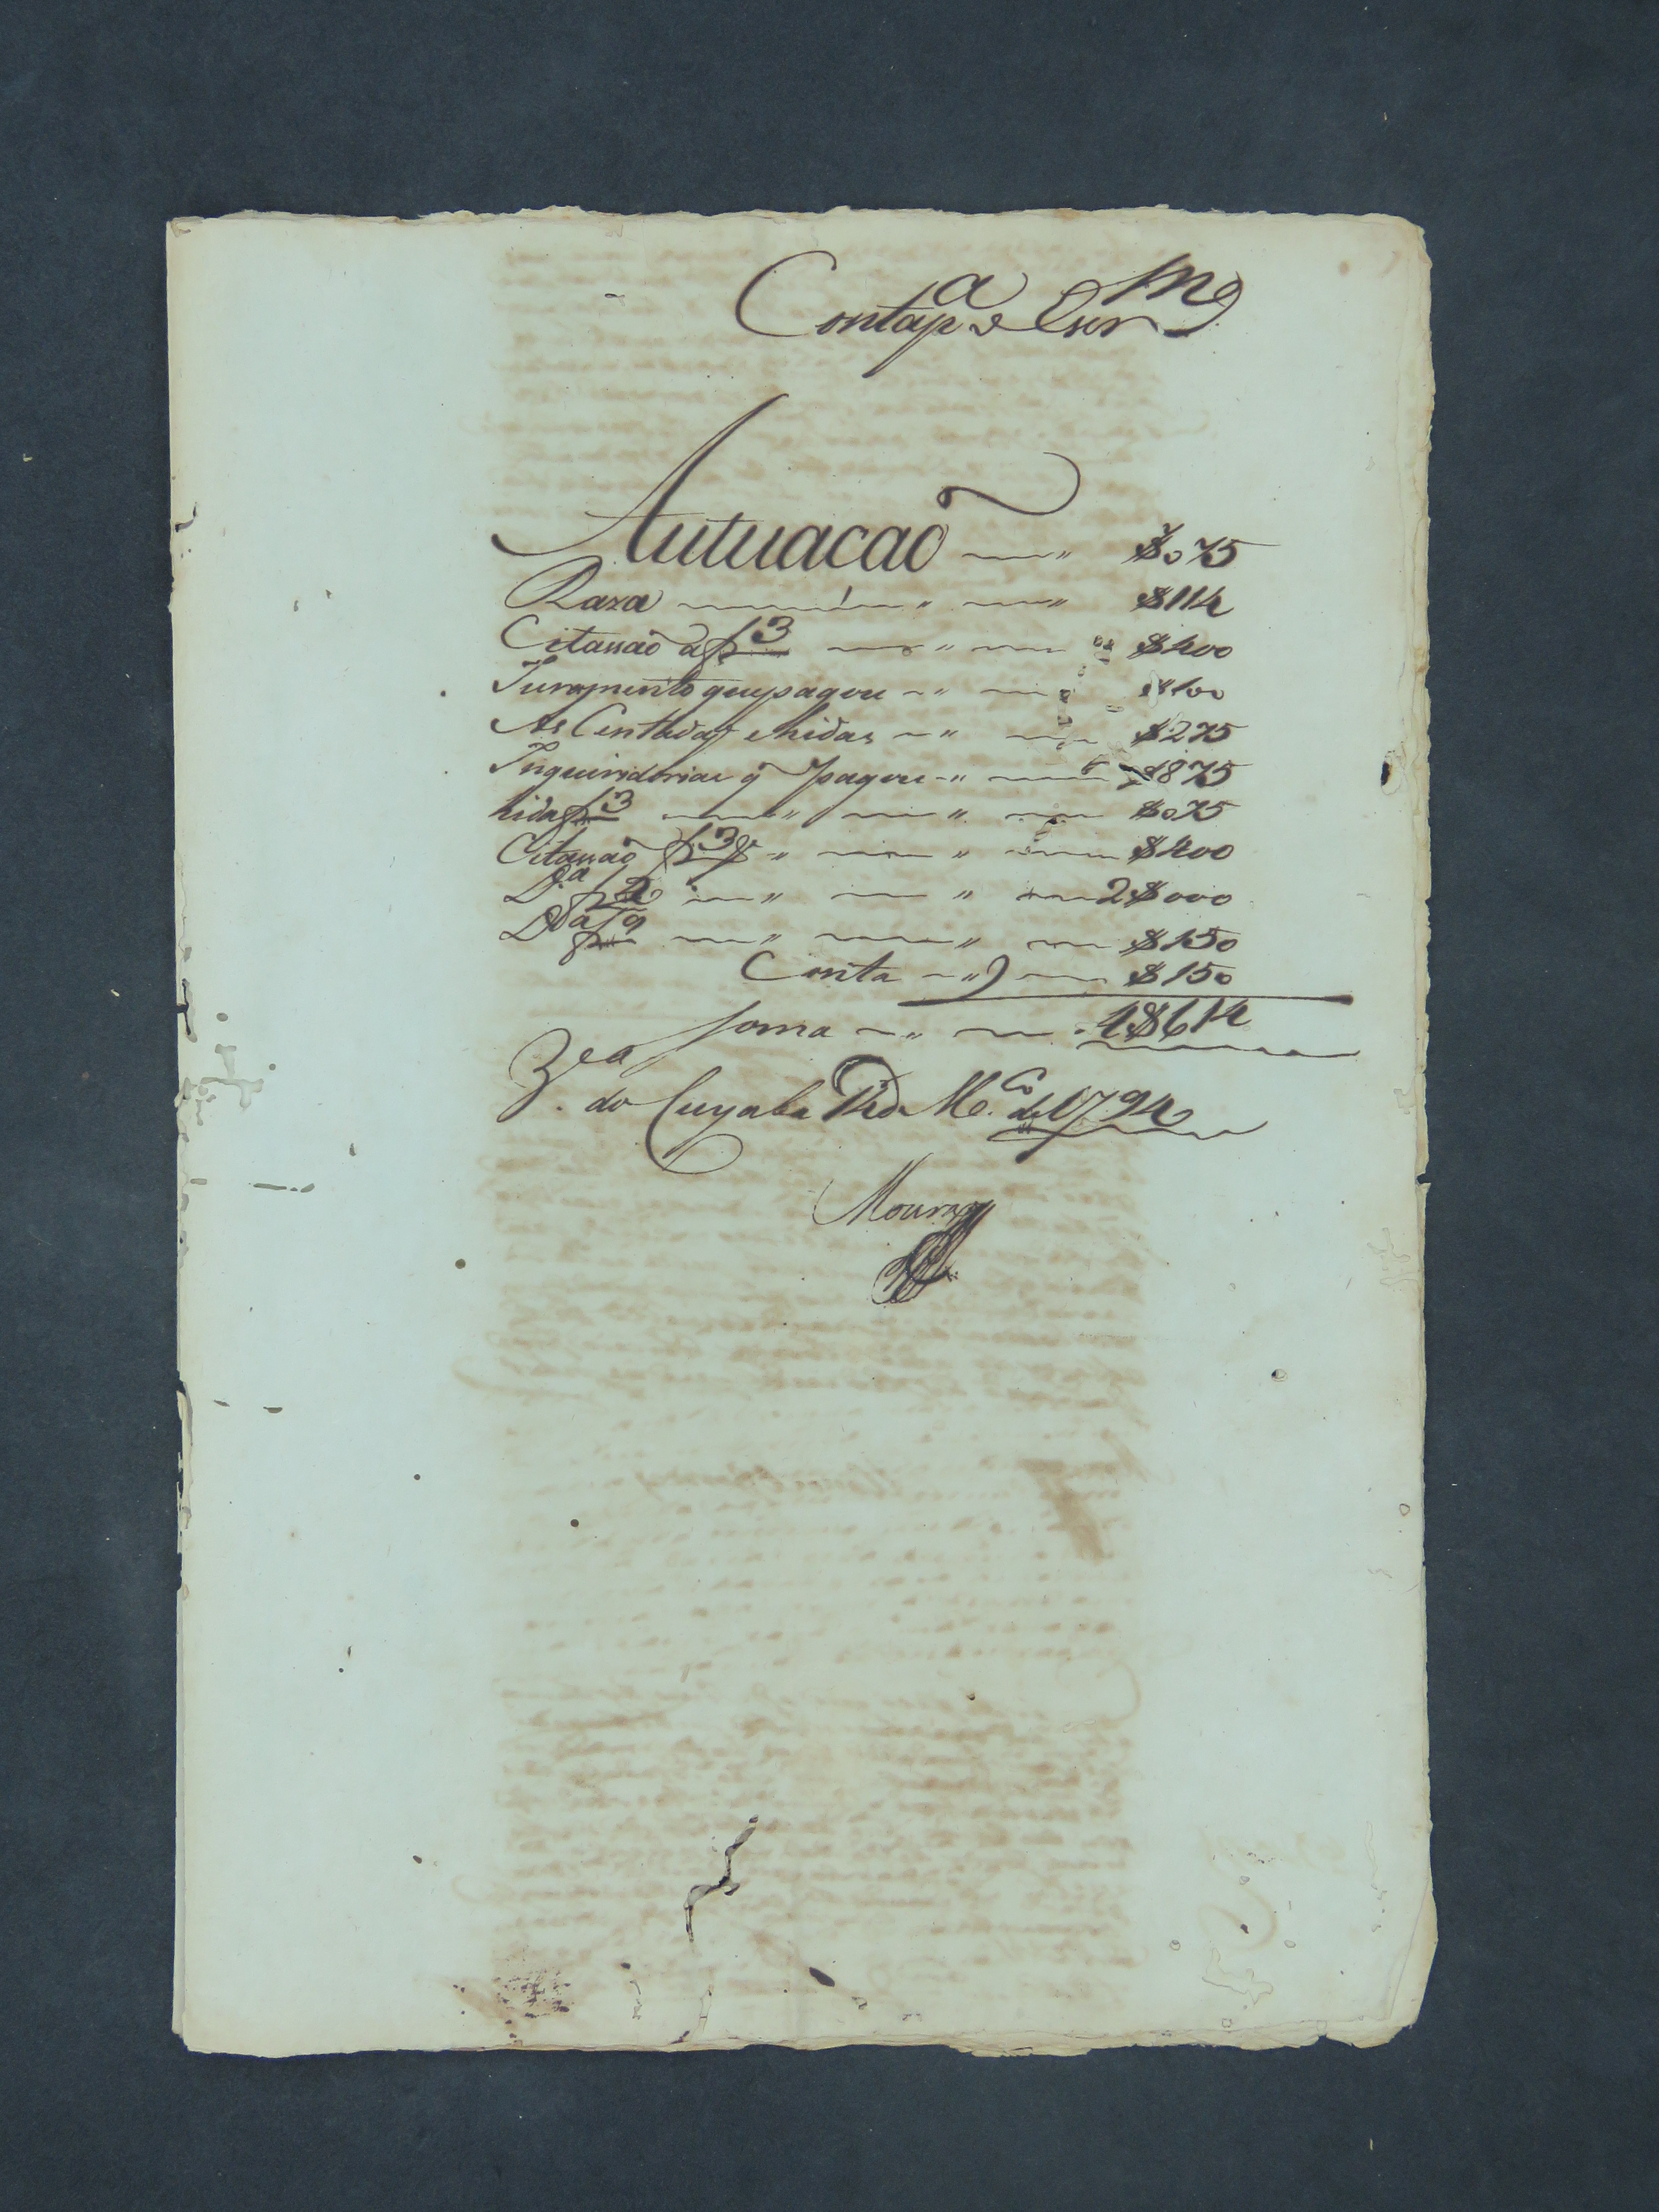 Conta p.ª o Escr.m
Autuacaõ $075
Raza $114
Citassaõ a f 3 $400
Juramento que pagou $100
As Centadas e hidas $275
Inqueiridorias q̃ pagou $875
hida f 3 $075
Citassaõ f 3 $400
D.ª f 2 2$000
D.ª f 9 $150
Conta $150
Soma 4$614
do Cuyaba de M.ço de 1794
Moura